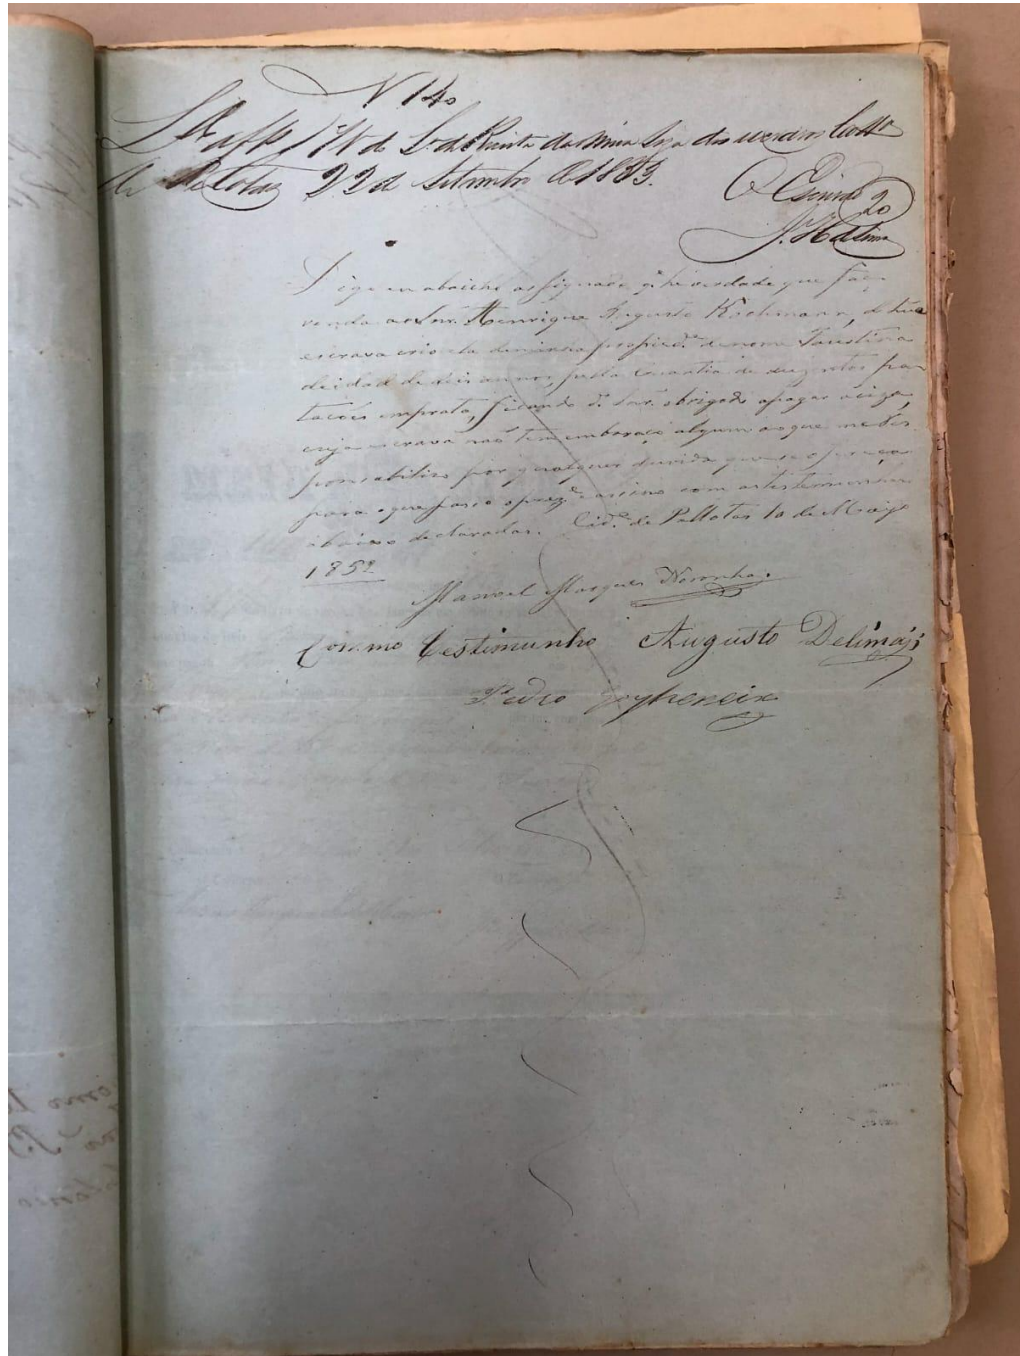 N 140
de Pelotas 22 de Setembro de 1883.
O Escrivão
20
Digo eu abaicho assignado q. he verdade que faço
venda ao Snr. Henrique Augusto Kochmann, de hua
escrava crioula de minha propried.e de nome Faustina
de idade de seis annos, pella coantia de duzentos pa-
tacões em prata, ficando o d. Snr. obrigado apagar a ciza,
cuja escrava não tem embaraço algum ao que me res-
ponsabilizo por qualquer duvida que se ofereça
para o que passo o prez.e e assino com as testemunhas
abaixo declaradas. Cid.e de Pellotas 10 de Maijo
1852
Manoel Marques Noronha.
Commo testimunho Augusto Delima
Pedro